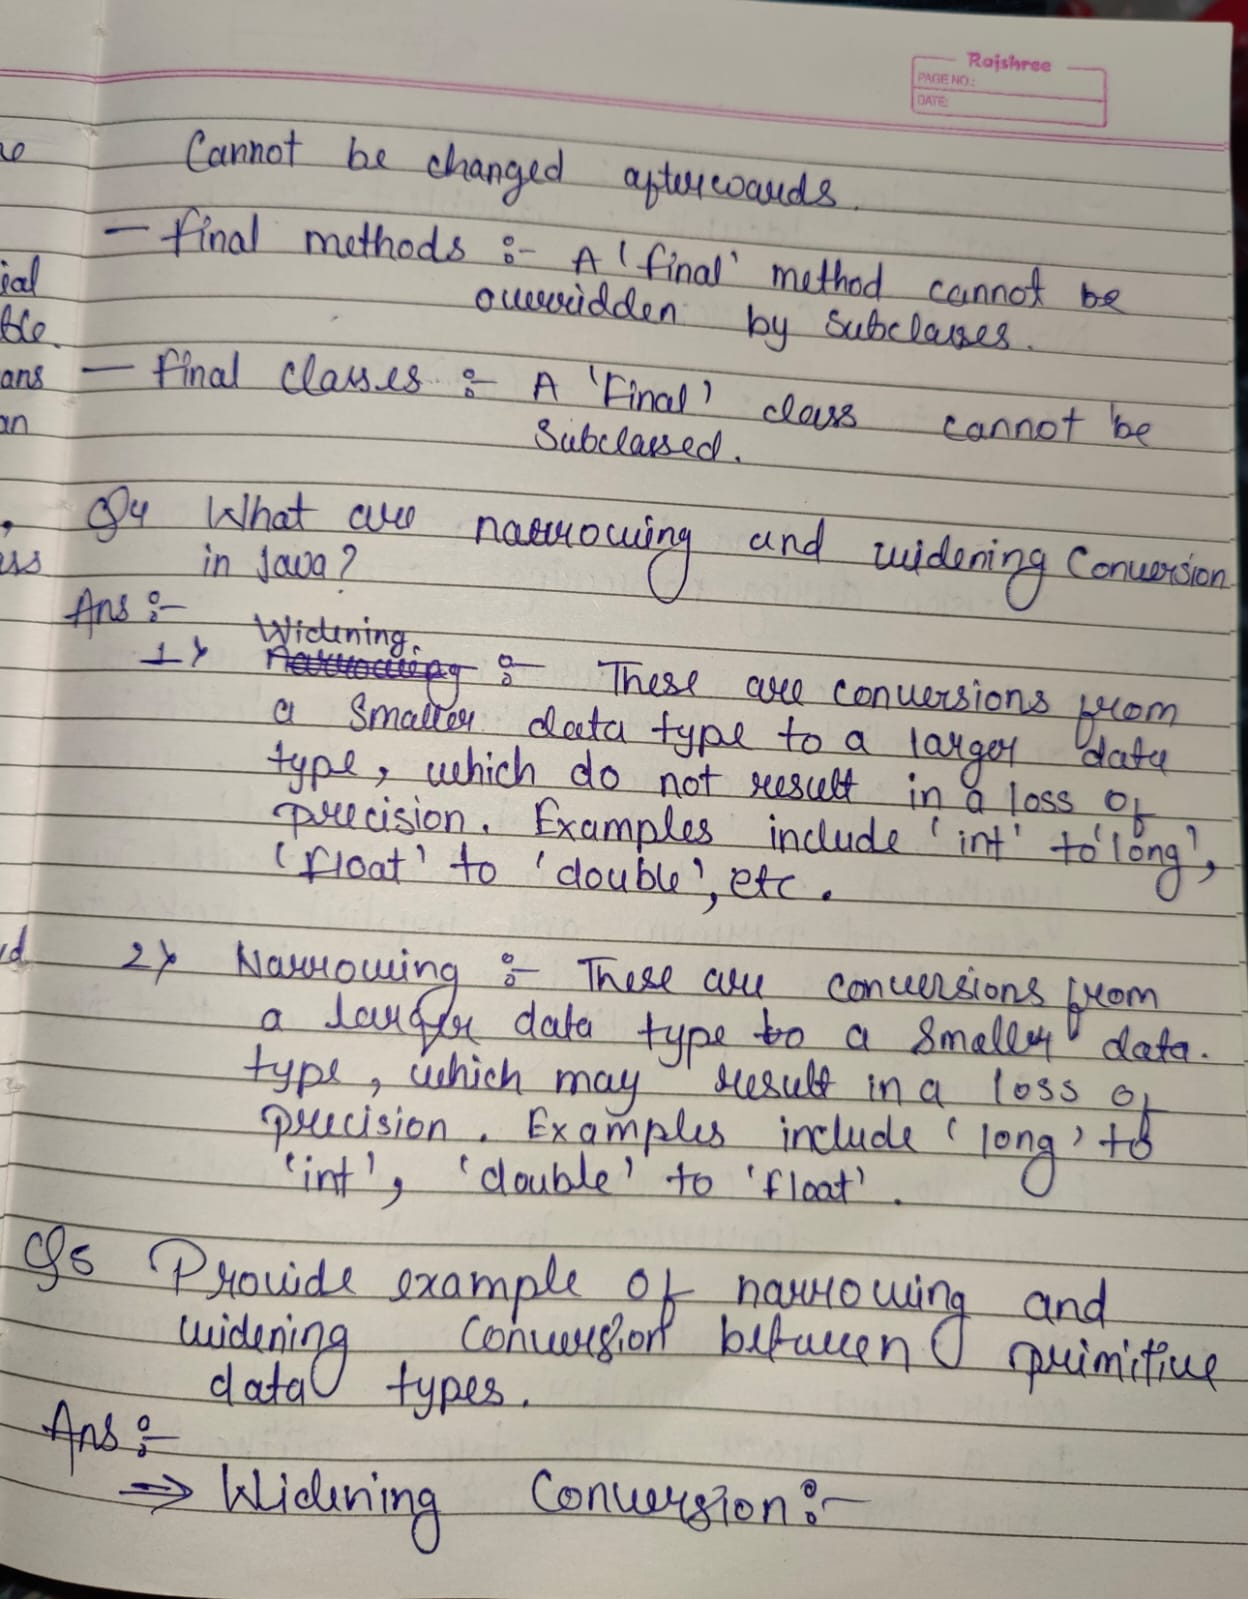 Rajshree
PAGE NO.:
DATE:
Cannot be changed afterwards.
— final methods :- A 'final' method cannot be
overridden by subclasses.
— final classes :- A 'Final' class cannot be
Subclassed.
Q4 What are narrowing and widening Conversion
in Java?
Ans :-
Widening.
1> Narrowing :- These are conversions from
a smaller data type to a larger data
type, which do not result in a loss of
precision. Examples include 'int' to 'long',
'float' to 'double', etc.
2> Narrowing :- These are conversions from
a larger data type to a smaller data.
type, which may result in a loss of
precision. Examples include 'long' to
'int', 'double' to 'float'.
Q5 Provide example of narrowing and
widening conversion between primitive
data types.
Ans :-
⇒ Widening Conversion :-
ial
ble.
ans
an